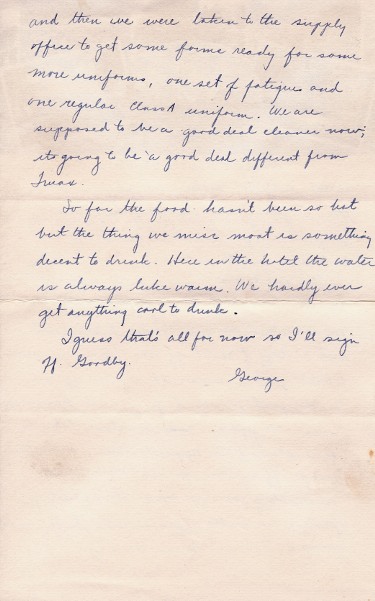 and then we were taken to the supply
office to get some forms ready for some
more uniforms, one set of fatigues and
one regular Class A uniform. We are
supposed to be a good deal cleaner now;
its going to be a good deal different from
Truax.
So far the food hasn't been so hot
but the thing we miss most is something
decent to drink. Here in the hotel the water
is always luke warm. We hardly ever
get anything cool to drink.
I guess that's all for now so I'll sign
off. Goodby.
George